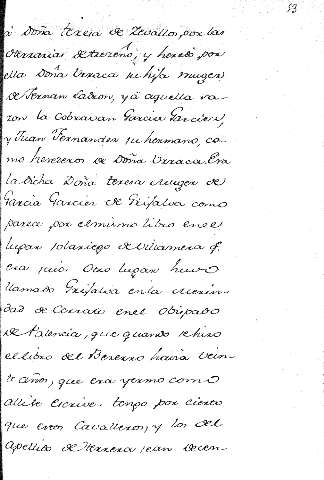 53
à Doña teresa de Zevallos, por las
Herrarias de treceño, y heredò por
ella Doña Urraca su hija muger
de Fernan Ladron, y à aquella ra-
zon la cobravan Garcia Garcien,
y Juan Fernandez su hermano, co-
mo herezeros de Doña Urraca. Era
la dicha Doña teresa Muger de
Garcia Garcies de Grifalva como
parece por el mismo libro en el
lugar solariego de Villamera q.
era suio. Otro lugar huvo
llamado Grifalva en la Merin-
dad de Cerrato en el Obispado
de Palencia, que quando se hizo
el libro del Bezerro havia vein-
te años, que era yermo como
alli se escrive. tengo por cierto
que estos Cavalleros, y los del
Apellido de Herrera sean Decen-